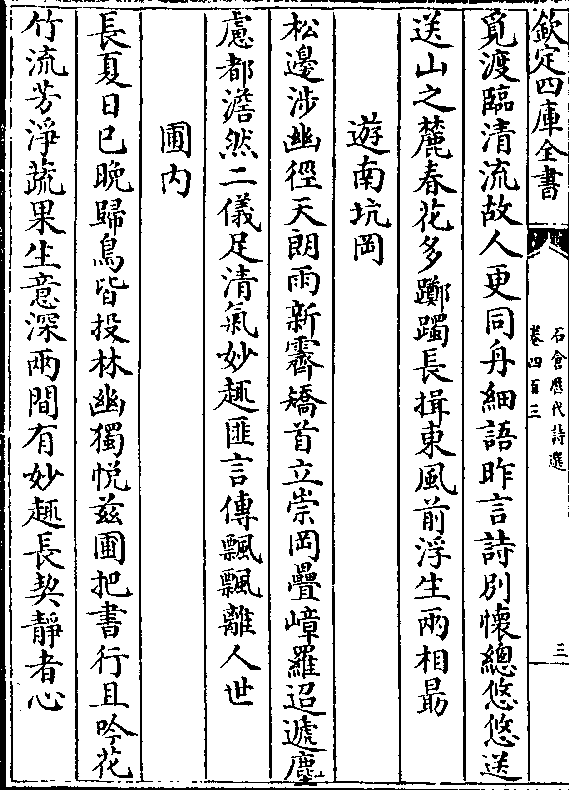 欽定四庫全書
石倉歷代詩選
卷四百三
三
覓渡臨清流故人更同舟細語昨言詩別懷總悠悠送
送山之麓春花多躑躅長揖東風前浮生兩相勗
遊南坑岡
松邊涉幽徑天朗雨新霽矯首立崇岡疊嶂羅迢遞塵
慮都澹然二儀足清氣妙趣匪言傳飄飄離人世
圃内
長夏日已晚歸鳥皆投林幽獨悦兹圃把書行且吟花
竹流芳淨蔬果生意深兩間有妙趣長契靜者心